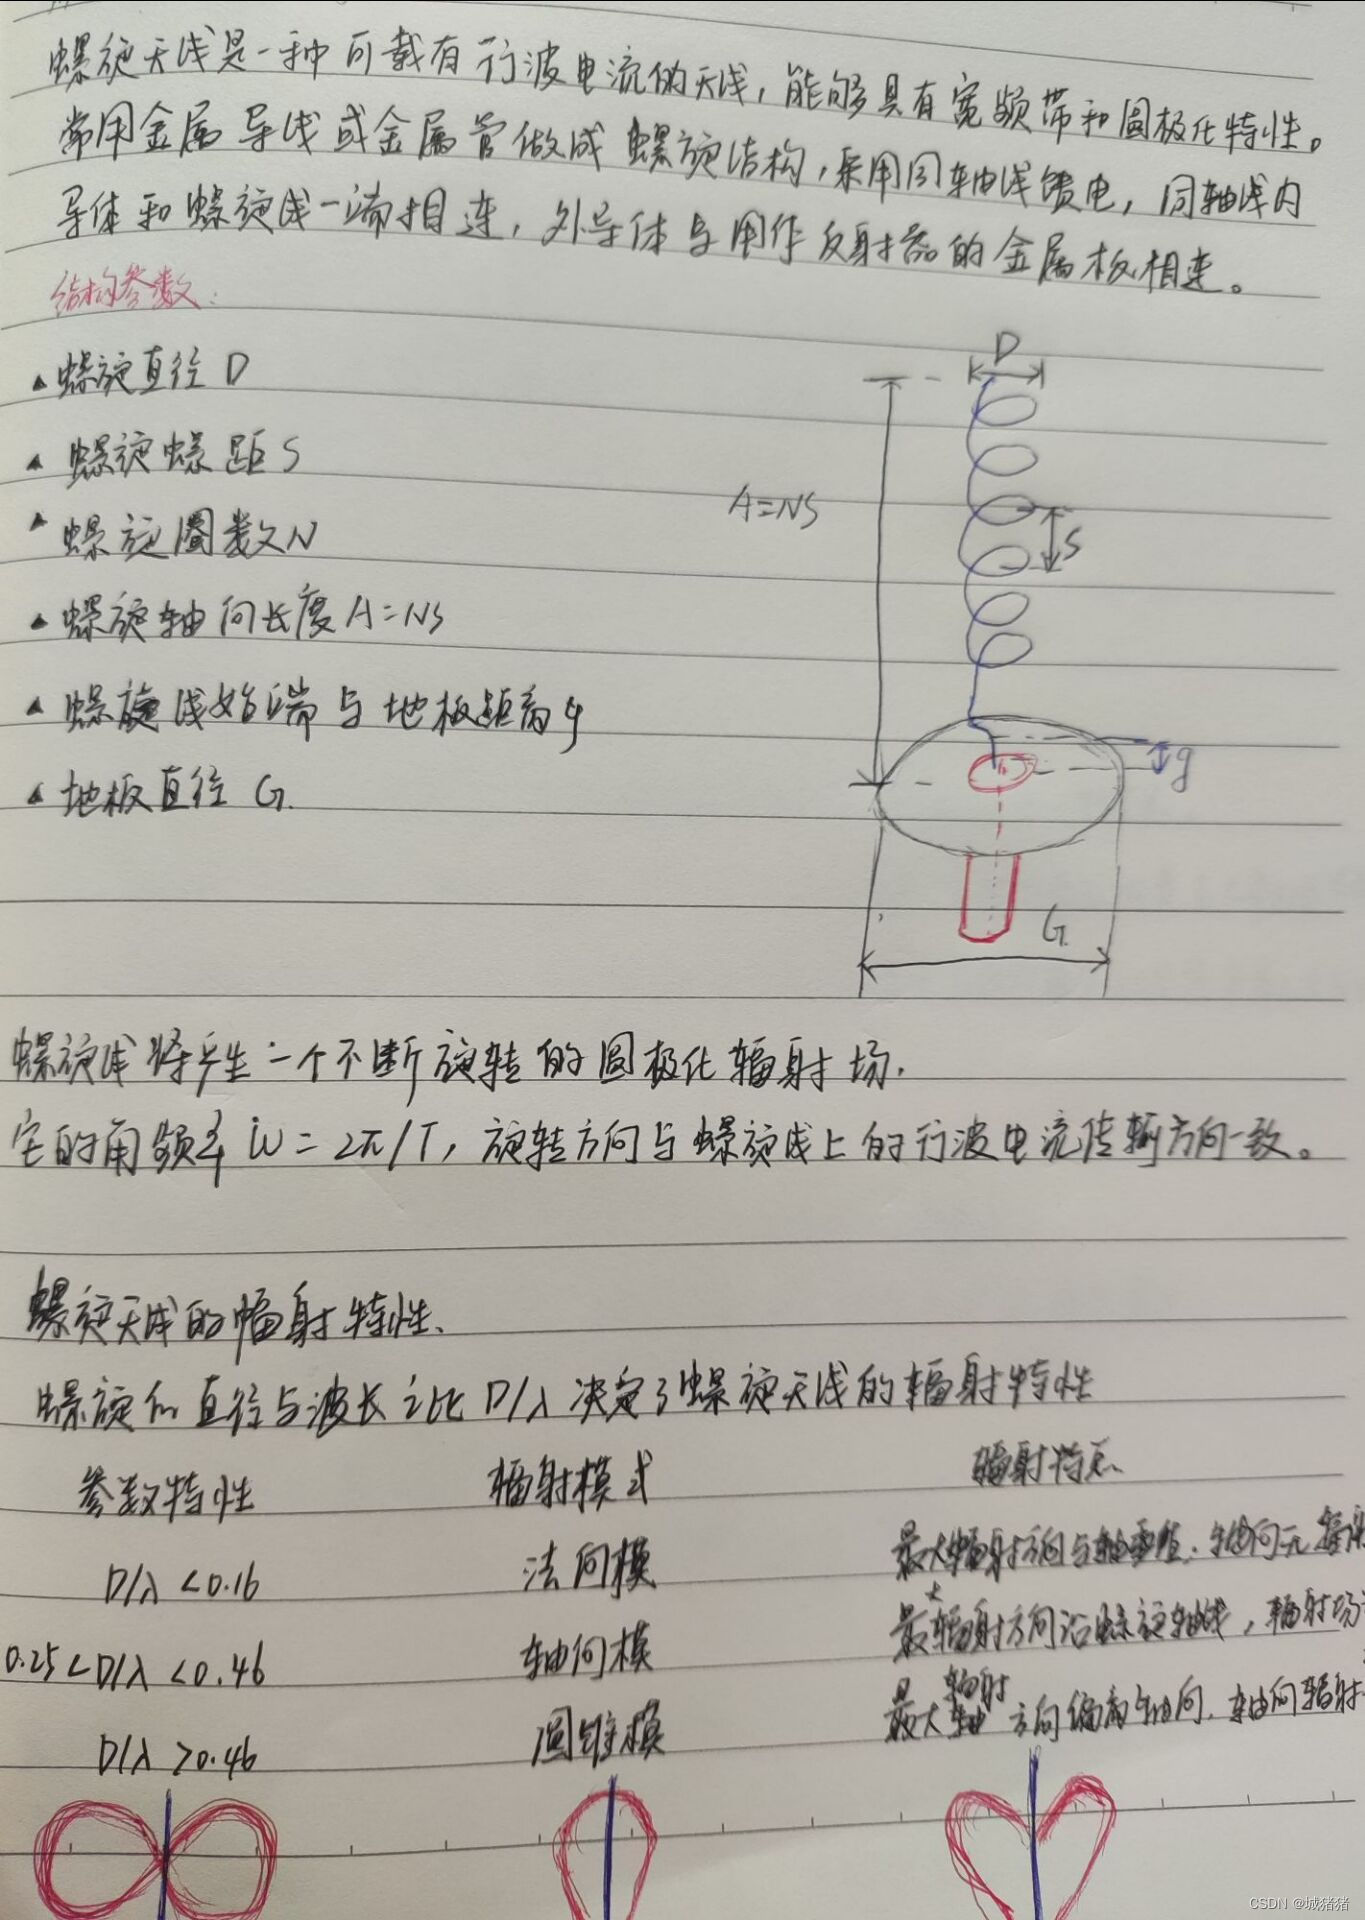 螺旋天线是一种可载有行波电流的天线，能够具有宽频带和圆极化特性。
常用金属导线或金属管做成螺旋结构，采用同轴线馈电，同轴线内
导体和螺旋线一端相连，外导体与用作反射器的金属板相连。
结构参数：
▲螺旋直径 D
▲螺旋螺距 S
▲螺旋圈数 N
▲螺旋轴向长度 A=NS
▲螺旋线始端与地板距离 g
▲地板直径 G.
D
A=NS
S
g
G.
螺旋线将产生一个不断旋转的圆极化辐射场.
它的角频率 W=2π/T，旋转方向与螺旋线上的行波电流传输方向一致。
螺旋天线的辐射特性、
螺旋的直径与波长之比 D/λ 决定了螺旋天线的辐射特性
参数特性 辐射模式 辐射特点
D/λ <0.16 法向模 最大辐射方向与轴垂直.轴向无辐射
0.25<D/λ <0.46 轴向模 最大辐射方向沿螺旋轴线，辐射场
D/λ >0.46 圆锥模 最大辐射方向偏离轴向.轴向辐射
CSDN @城猪猪